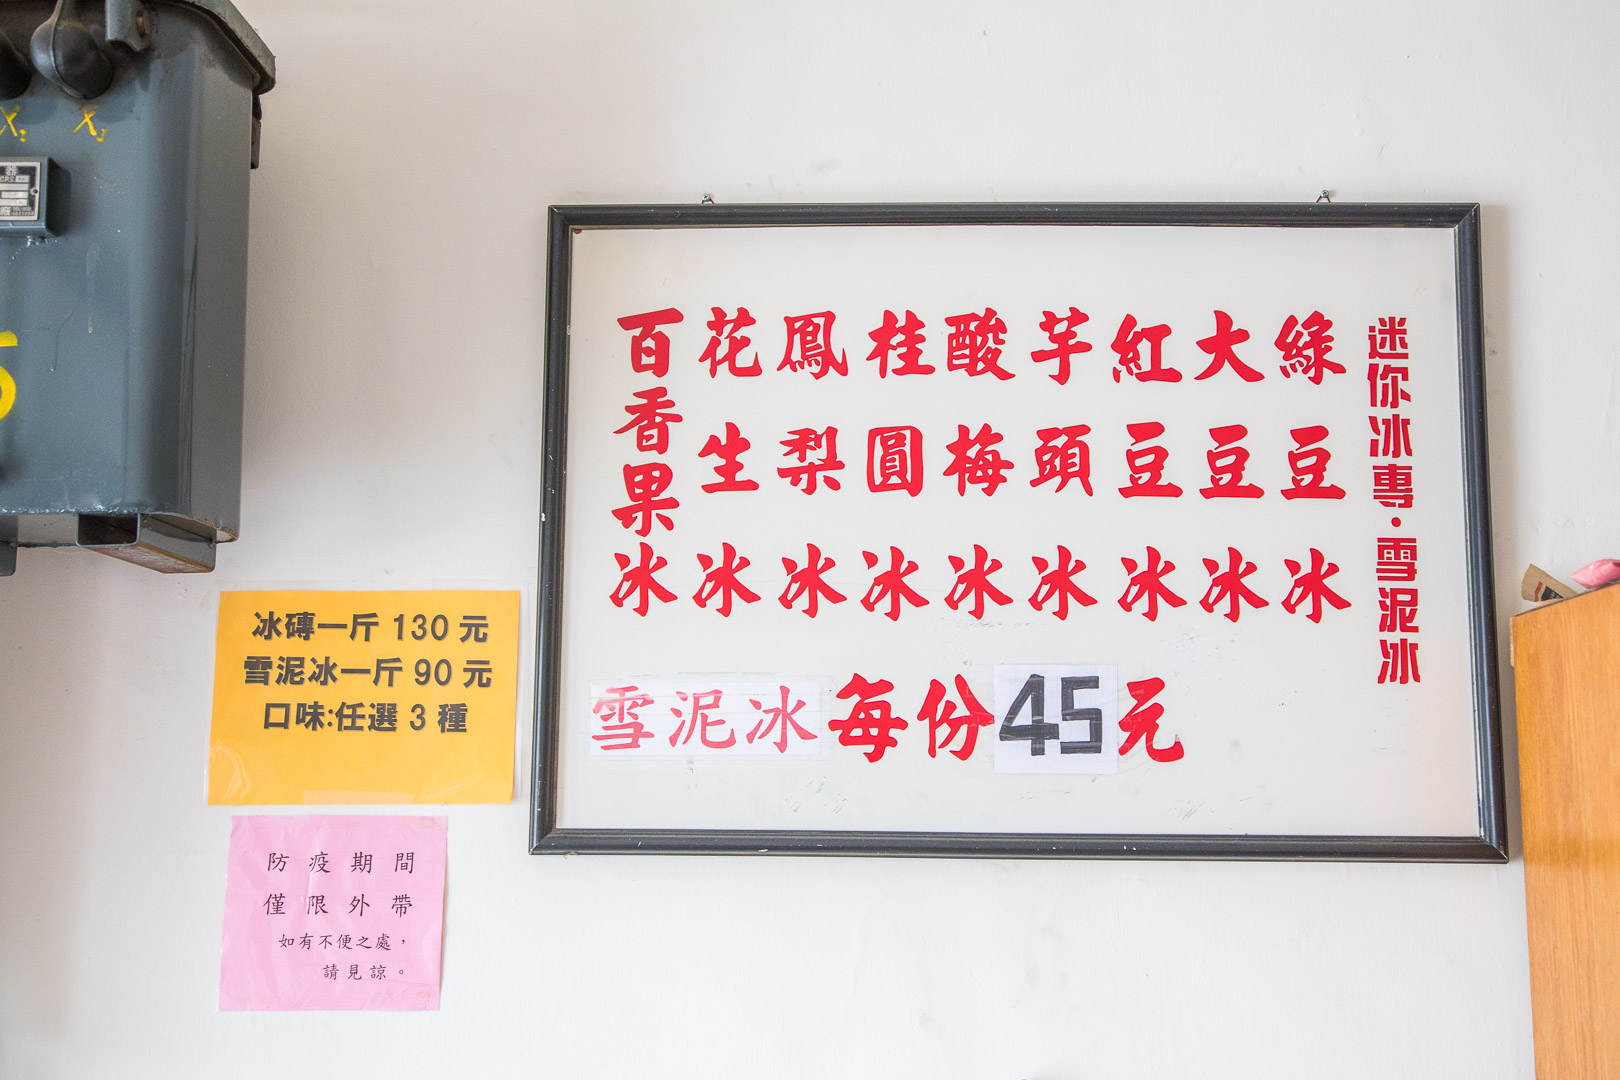 迷你冰專・雪泥冰
綠豆冰
大豆冰
紅豆冰
芋頭冰
酸梅冰
桂圓冰
鳳梨冰
花生冰
百香果冰
雪泥冰每份45元
冰磚一斤 130 元
雪泥冰一斤 90 元
口味:任選 3 種
防疫期間
僅限外帶
如有不便之處，
請見諒。
X₂ X₃
5